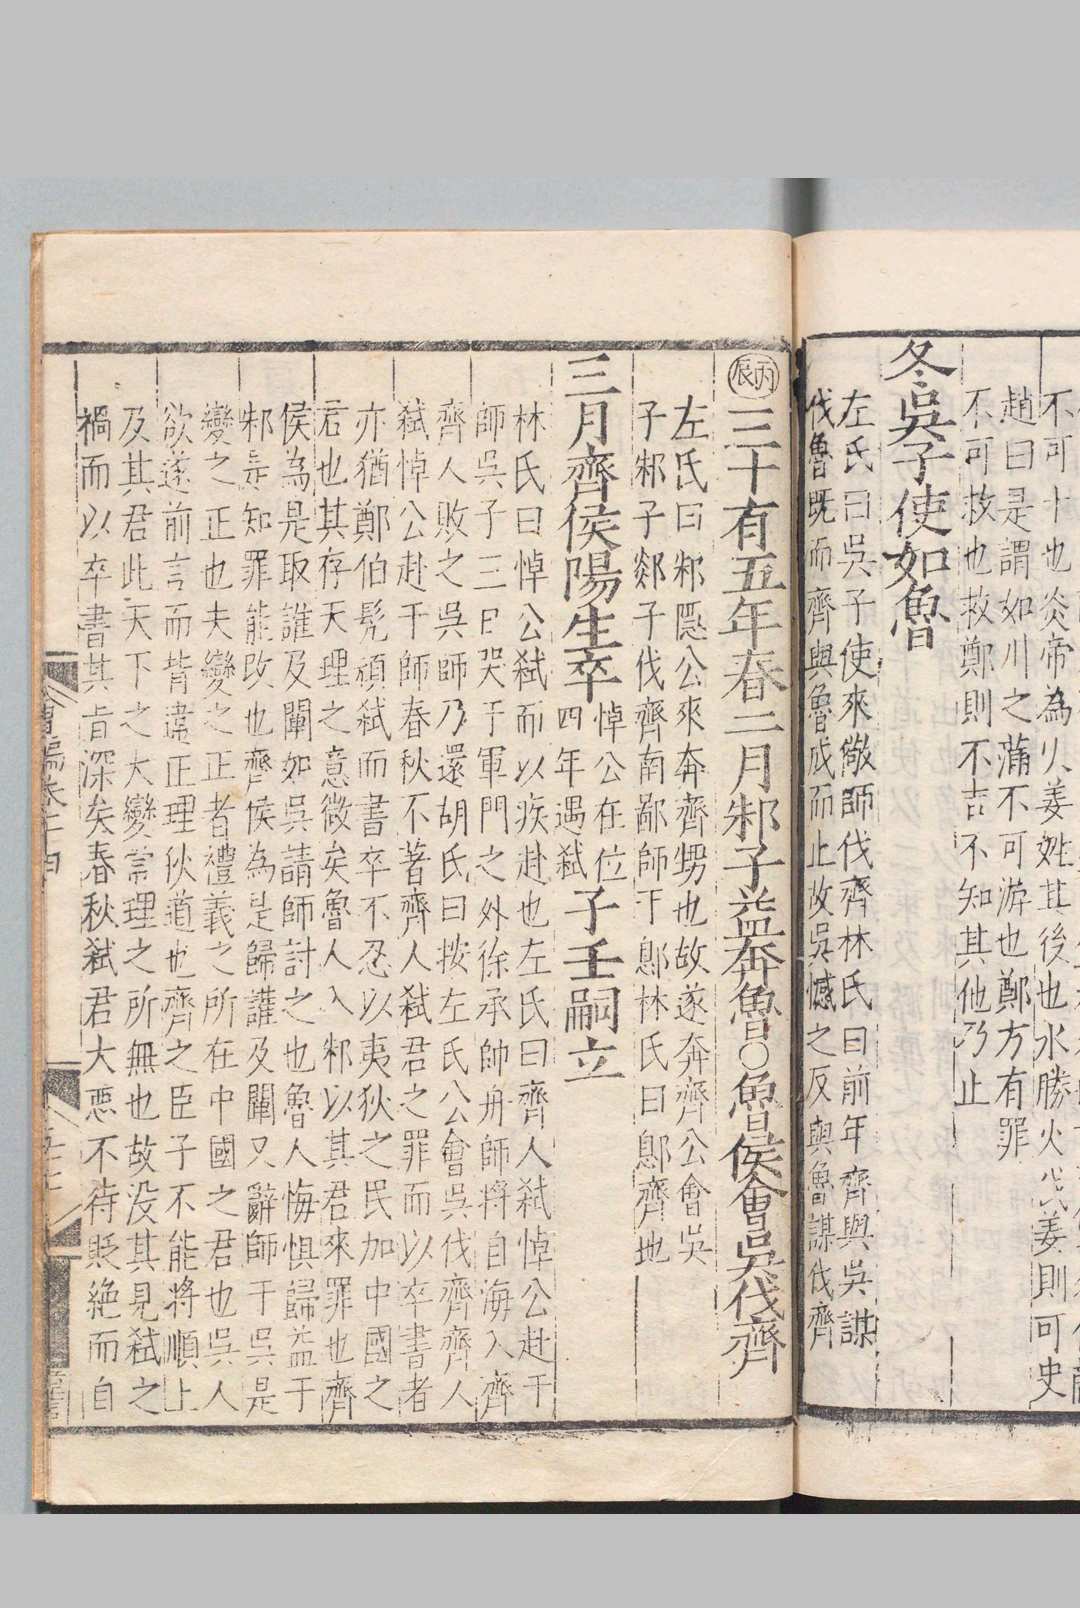 不可
也炎帝為火
姜姓其後也水勝火伐姜則可史
趙曰是謂如川之滿不可游也鄭方有罪
不可救也救鄭則不吉不知其他乃止
冬吳子使如魯
左氏曰吳子使來儆師伐齊林氏曰前年齊與吳謀
伐魯既而齊與魯成而止故吳憾之反與魯謀伐齊
丙辰三十有五年春二月邾子益奔魯○魯侯會吳伐齊
左氏曰邾隱公來奔齊甥也故遂奔齊公會吳
子邾子郯子伐齊南鄙師于鄎林氏曰鄎齊地
三月齊侯陽生卒悼公在位四年遇弒子壬嗣立
林氏曰悼公弒而以疾赴也左氏曰齊人弒悼公赴于
師吳子三日哭于軍門之外徐承帥舟師將自海入齊
齊人敗之吳師乃還胡氏曰按左氏公會吳伐齊齊人
弒悼公赴于師春秋不著齊人弒君之罪而以卒書者
亦猶鄭伯髡頑弒而書卒不忍以夷狄之民加中國之
君也其存天理之意微矣魯人入邾以其君來罪也齊
侯為是取讙及闡如吳請師討之也魯人悔懼歸益于
邾是知罪能改也齊侯為是歸讙及闡又辭師于吳是
變之正也夫變之正者禮義之所在中國之君也吳人
欲遂前言而背違正理狄道也齊之臣子不能將順上
及其君此天下之大變常理之所無也故没其見弒之
禍而以卒書其旨深矣春秋弒君大惡不待貶絶而自